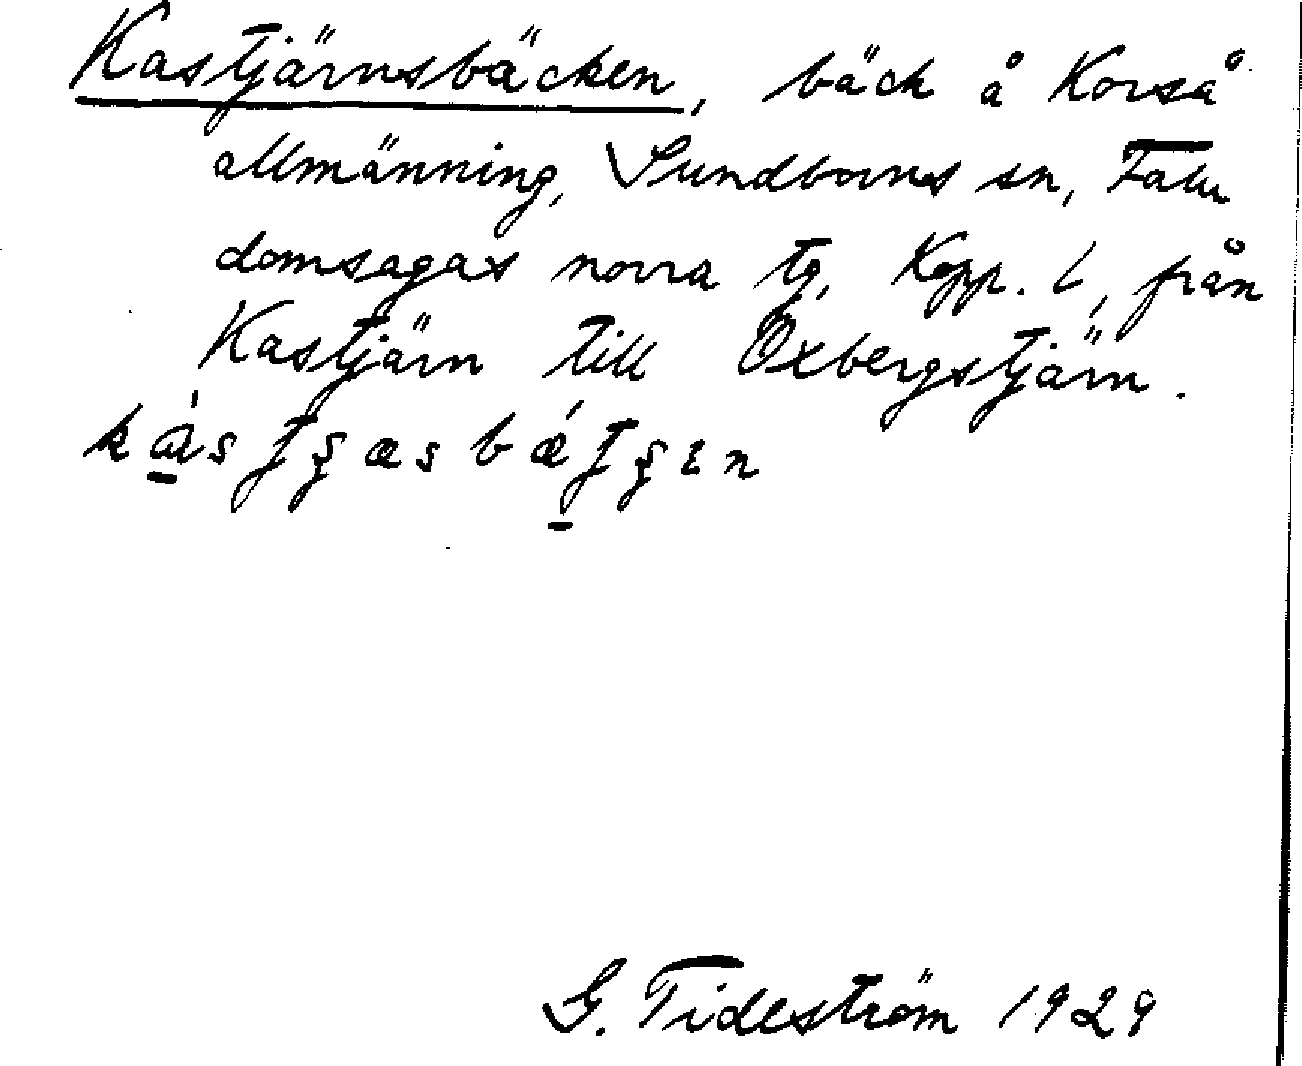 Kastjärnsbäcken, bäck å Korså
allmänning, Sundborns sn, Falu
domsagas norra tg, Kopp. l, från
Kastjärn till Oxbergstjärn.
G. Tideström 1929